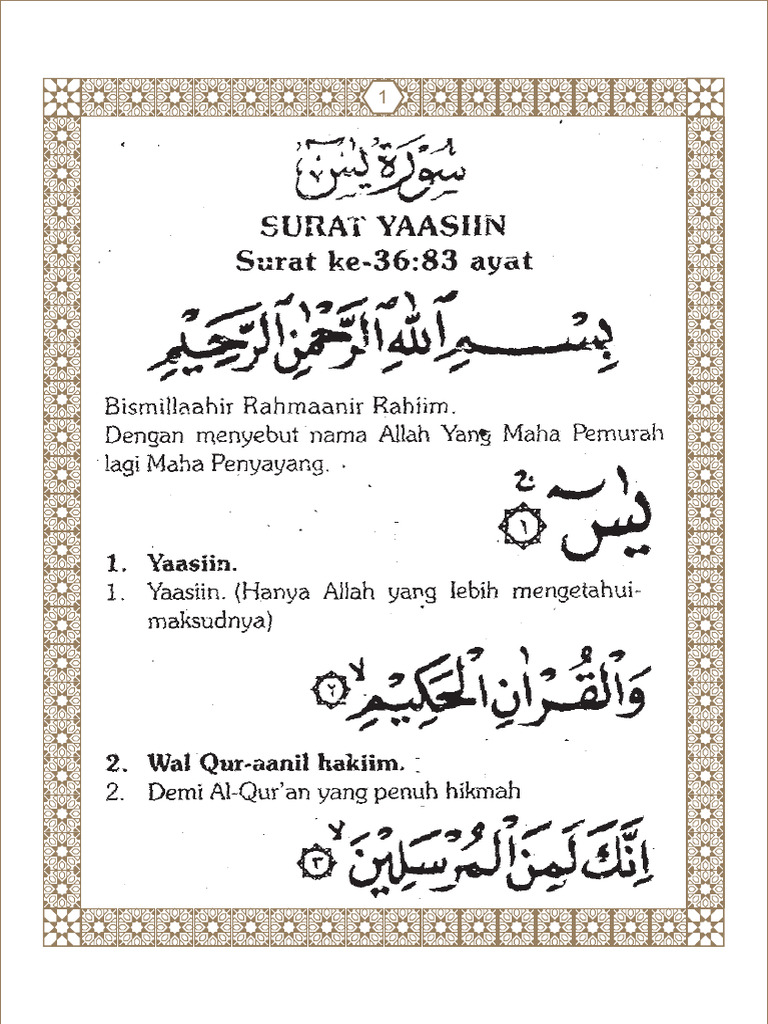 1
سُوْرَةُ يٰسٓ
SURAT YAASIIN
Surat ke-36:83 ayat
بِسْـــمِ اللّٰهِ الرَّحْمٰنِ الرَّحِيْمِ
Bismillaahir Rahmaanir Rahiim.
Dengan menyebut nama Allah Yang Maha Pemurah
lagi Maha Penyayang.
يٰسٓ ۚ ١
1. Yaasiin.
1. Yaasiin. (Hanya Allah yang lebih mengetahui-
maksudnya)
وَالْقُرْاٰنِ الْحَكِيْمِ ۙ ٢
2. Wal Qur-aanil hakiim.
2. Demi Al-Qur'an yang penuh hikmah
اِنَّكَ لَمِنَ الْمُرْسَلِيْنَ ۙ ٣